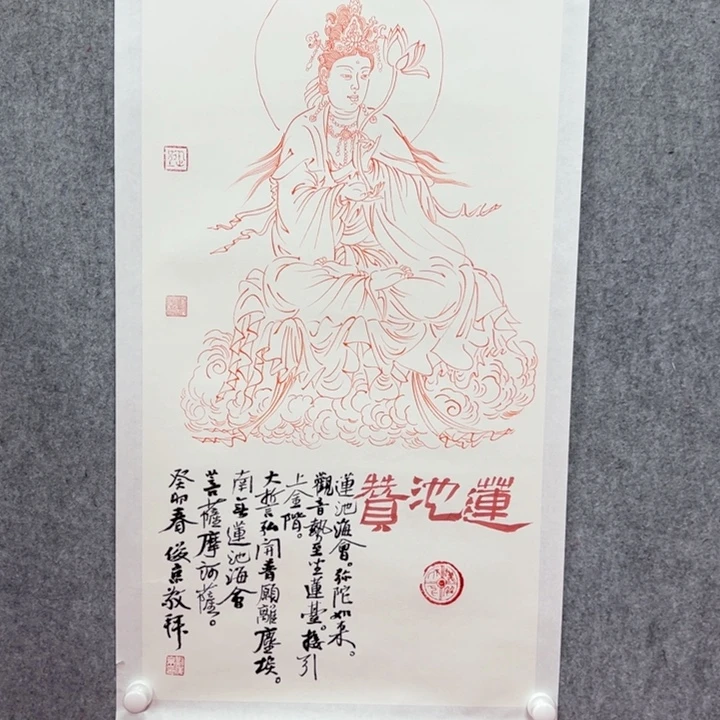 蓮池贊
蓮池海會。弥陀如来。
觀音勢至坐蓮臺。接引
上金階。
大誓弘開普願離塵埃。
南無蓮池海會
菩薩摩訶薩。
癸卯春俊京敬拜